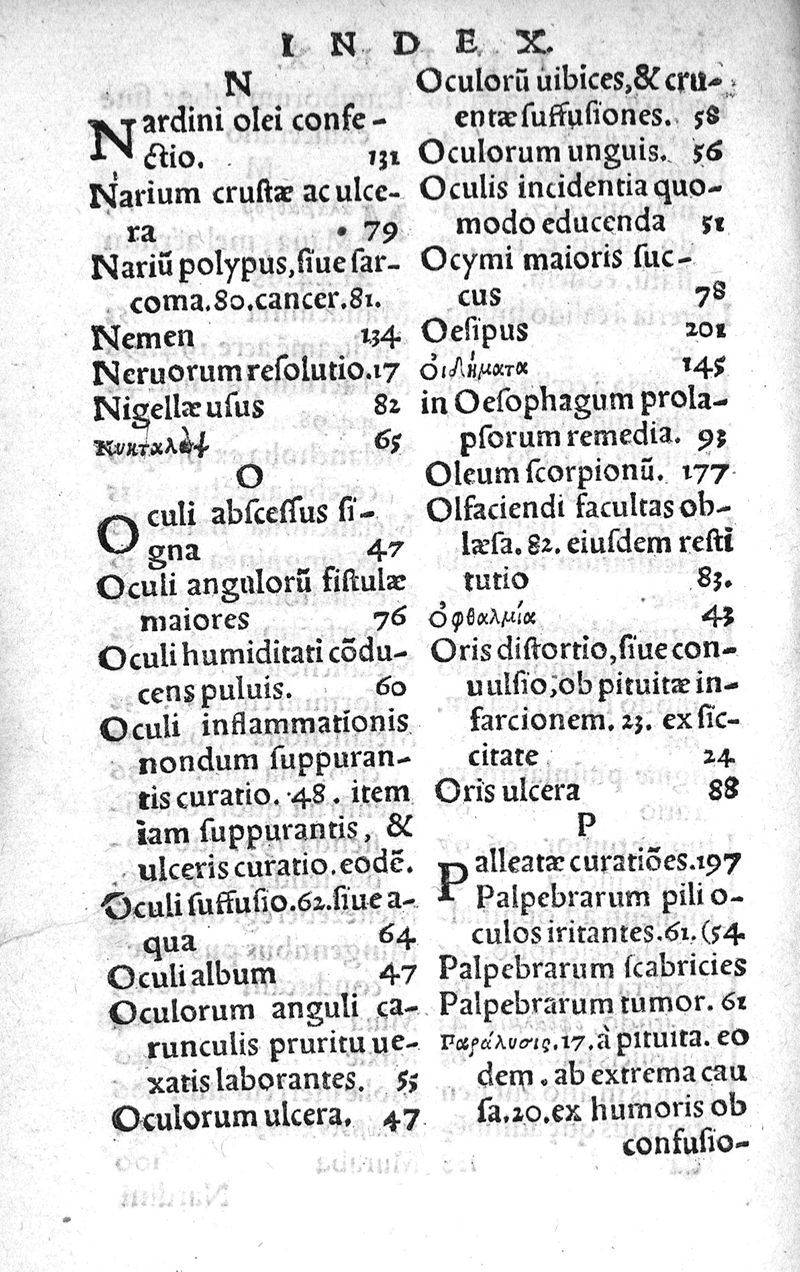 INDEX.
N
Nardini olei confe-
ctio. 131
Narium crustæ ac ulce-
ra 79
Nariũ polypus, siue sar-
coma. 80. cancer. 81.
Nemen 134
Neruorum resolutio. 17
Nigellæ usus 82
65
O
Oculi abscessus si-
gna 47
Oculi angulorũ fistulæ
maiores 76
Oculi humiditati cõdu-
cens puluis. 60
Oculi inflammationis
nondum suppuran-
tis curatio. 48. item
iam suppurantis, &
ulceris curatio. eodẽ.
Oculi suffusio. 62. siue a-
qua 64
Oculi album 47
Oculorum anguli ca-
runculis pruritu ue-
xatis laborantes. 55
Oculorum ulcera. 47
Oculorũ uibices, & cru-
entæ suffusiones. 58
Oculorum unguis. 56
Oculis incidentia quo-
modo educenda 51
Ocymi maioris suc-
cus 78
Oesipus 201
ὀιδήματα 145
in Oesophagum prola-
psorum remedia. 93
Oleum scorpionũ. 177
Olfaciendi facultas ob-
læsa. 82. eiusdem resti
tutio 83.
ὀφθαλμία 43
Oris distortio, siue con-
uulsio, ob pituitæ in-
farcionem. 23. ex sic-
citate 24
Oris ulcera 88
P
Palleatæ curatiões. 197
Palpebrarum pili o-
culos iritantes. 61. (54
Palpebrarum scabricies
Palpebrarum tumor. 61
Παράλυσις. 17. à pituita. eo
dem. ab extrema cau
sa. 20. ex humoris ob
confusio-